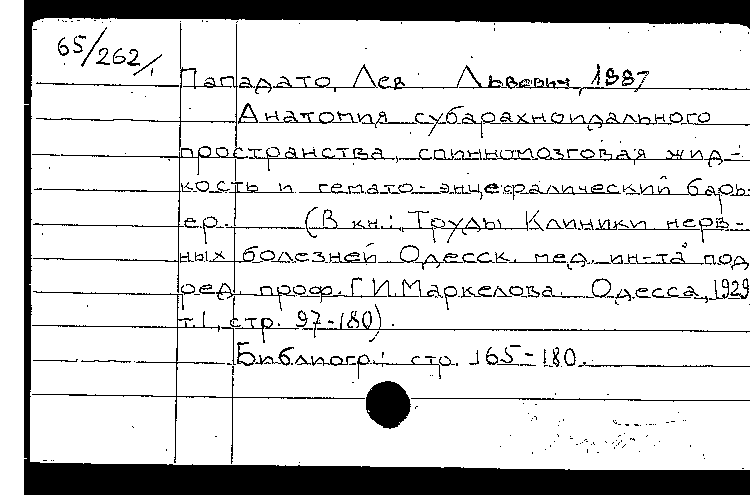 65/262/1
Пападато, Лев Львович, 1887
Анатомия субарахноидального
пространства, спинномозговая жид-
кость и гемато-энцефалический барь-
ер. (В кн.: Труды Клиники нерв-
ных болезней Одесск. мед. ин-та под
ред. проф. Г.И. Маркелова. Одесса, 1929,
т.1, стр. 97-180).
Библиогр.: стр. 165-180.